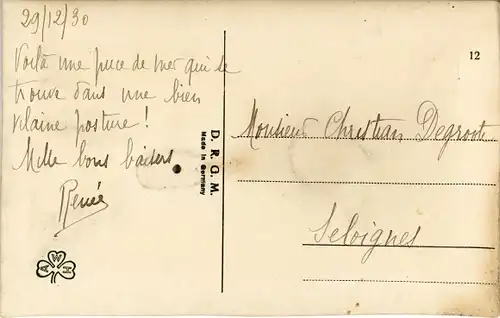 29/12/30
Voilà une puce de mer qui se
trouve dans une bien
vilaine posture !
Mille bons baisers
Renée
D. R. G. M.
Made in Germany
12
Monsieur Christian Degroote
Seloignes
A W H